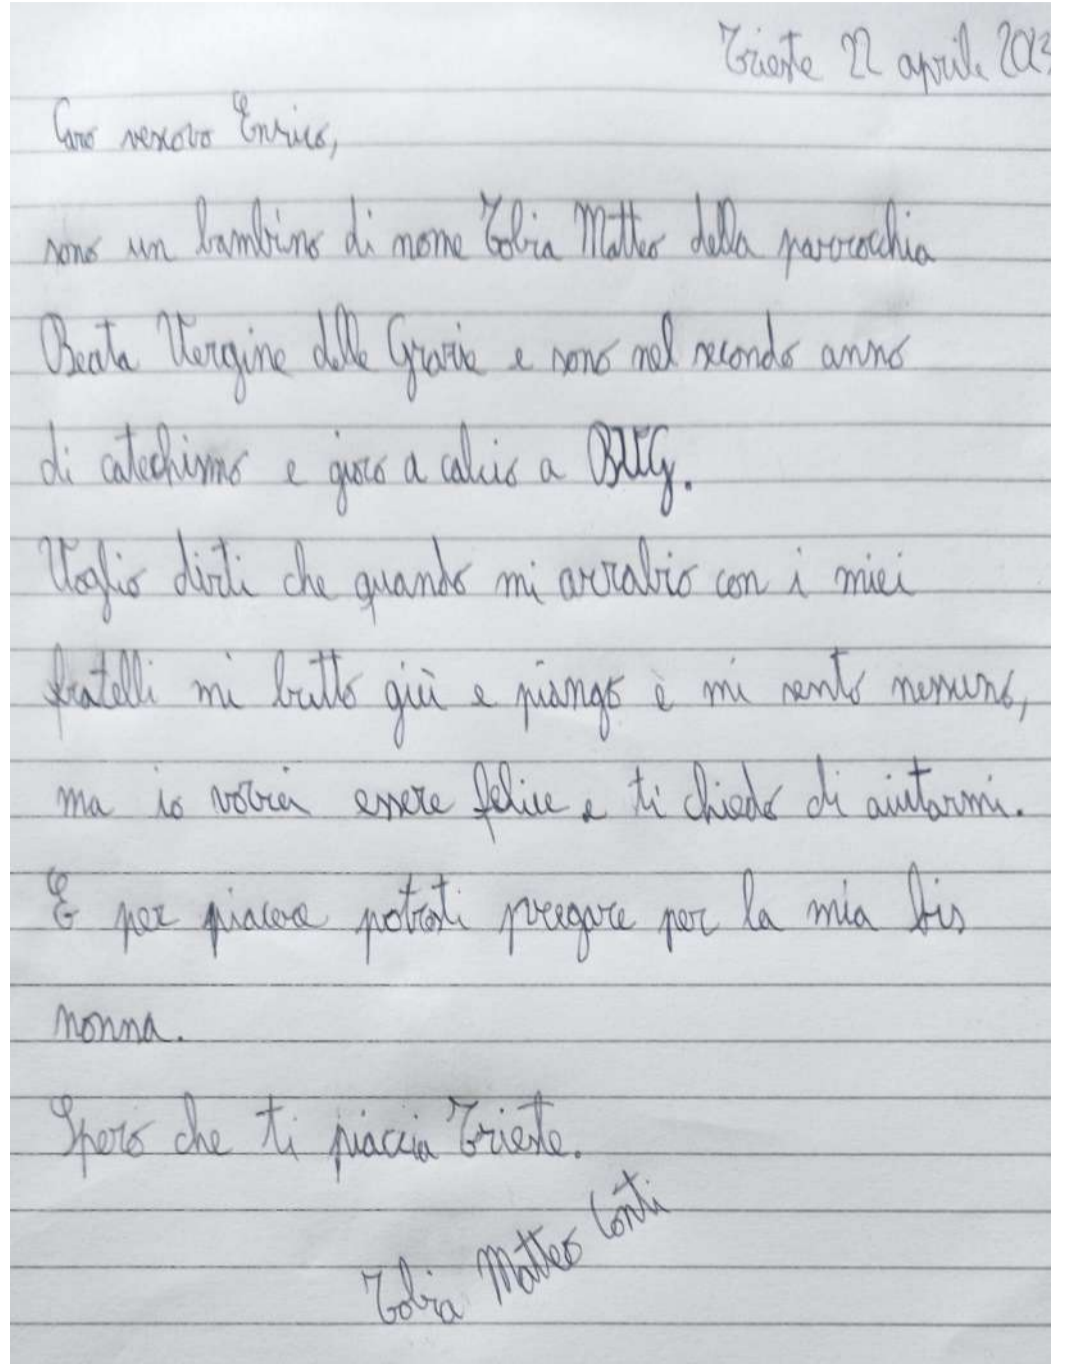 Trieste 22 aprile 2023
Caro vescovo Enrico,
sono un bambino di nome Tobia Matteo della parrocchia
Beata Vergine delle Grazie e sono nel secondo anno
di catechismo e gioco a calcio a BVG.
Voglio dirti che quando mi arrabio con i miei
fratelli mi butto giù e piango è mi sento nessuno,
ma io vorrei essere felice e ti chiedo di aiutarmi.
E per piacere potresti pregare per la mia bis
nonna.
Spero che ti piaccia Trieste.
Tobia Matteo Conti